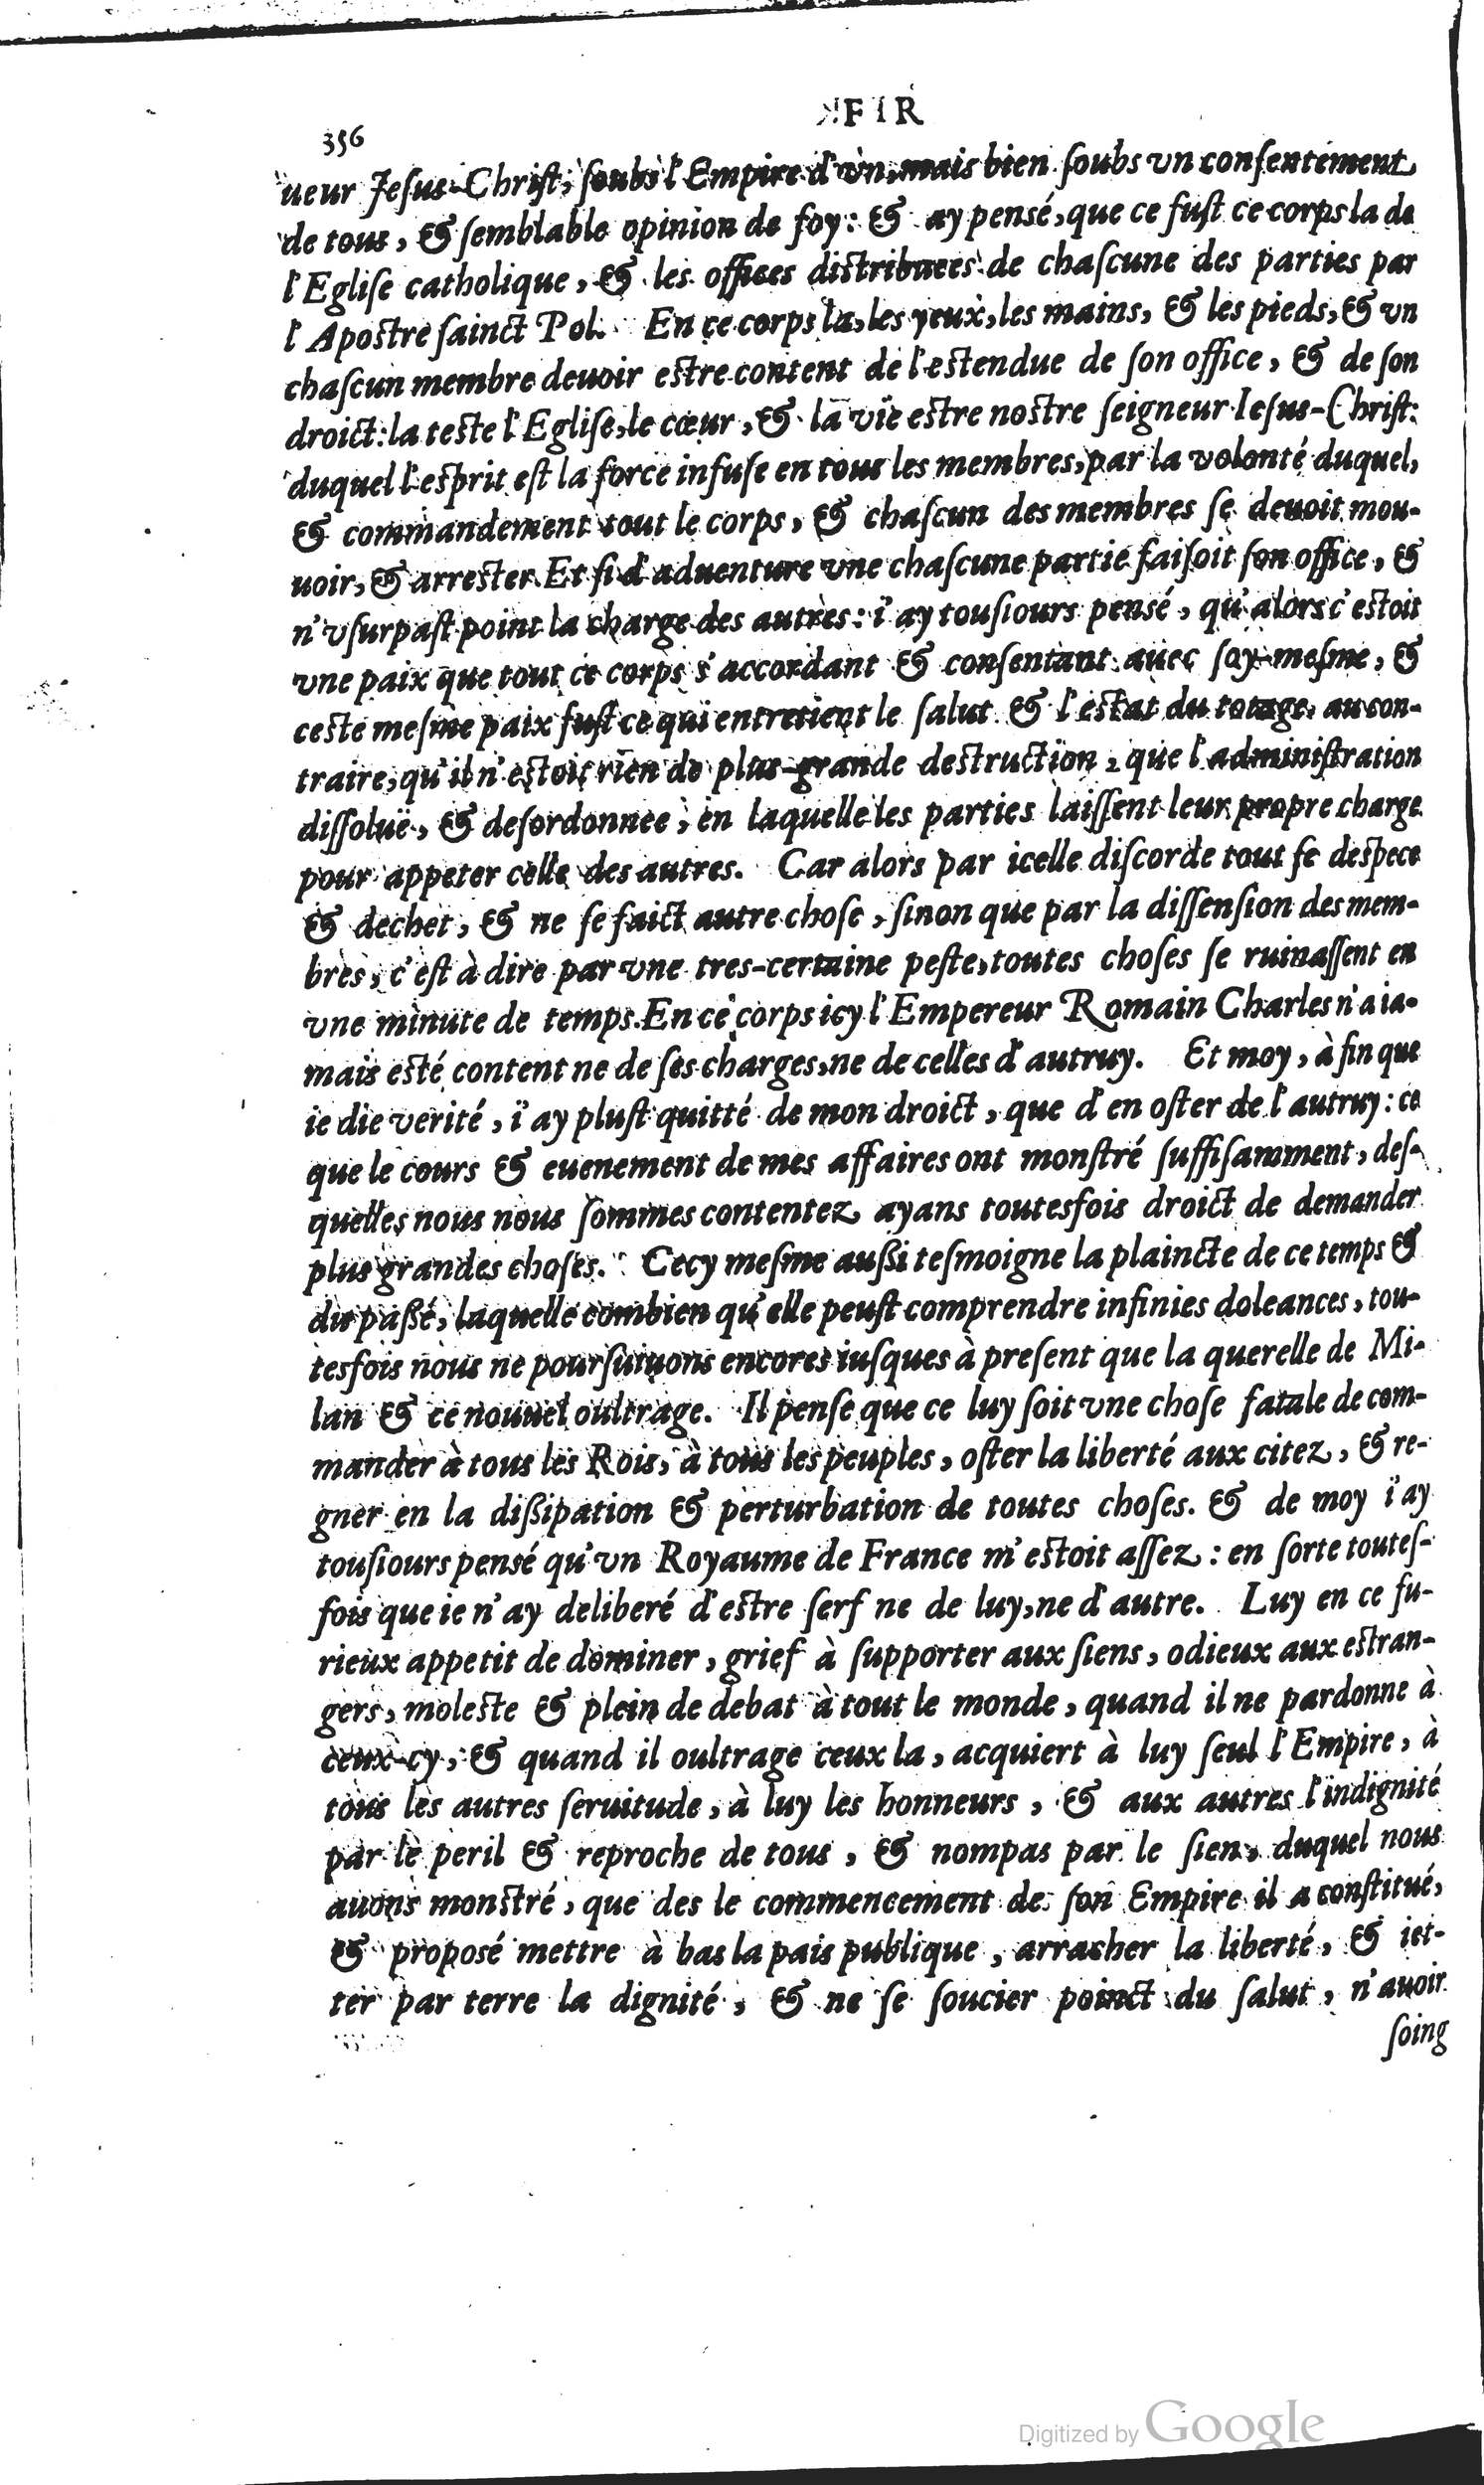 FIR
356
ueur Jeſus-Chriſt, ſoubs l'Empire d'vn, mais bien ſoubs vn conſentement
de tous, & ſemblable opinion de foy: & ay penſé, que ce fuſt ce corps la de
l'Egliſe catholique, & les offices diſtribuees de chaſcune des parties par
l'Apoſtre ſainct Pol. En ce corps la, les yeux, les mains, & les pieds, & vn
chaſcun membre deuoir eſtre content de l'eſtendue de ſon office, & de ſon
droict: la teſte l'Egliſe, le cœur, & la vïe eſtre noſtre ſeigneur Ieſus-Chriſt:
duquel l'eſprit eſt la force infuſe en tous les membres, par la volonté duquel,
& commandement tout le corps, & chaſcun des membres ſe deuoit mou-
uoir, & arreſter. Et ſi d'aduenture vne chaſcune partie faiſoit ſon office, &
n'vſurpaſt point la charge des autres: i'ay touſiours penſé, qu'alors c'eſtoit
vne paix que tout ce corps s'accordant & conſentant auec ſoy-meſme, &
ceſte meſme paix fuſt ce qui entretient le ſalut & l'eſtat du totage. au con-
traire, qu'il n'eſtoit rien de plus-grande deſtruction, que l'adminiſtration
diſſoluë, & deſordonnee, en laquelle les parties laiſſent leur propre charge
pour appeter celle des autres. Car alors par icelle diſcorde tout ſe deſpece
& dechet, & ne ſe faict autre choſe, ſinon que par la diſſenſion des mem-
bres, c'eſt à dire par vne tres-certaine peſte, toutes choſes ſe ruinaſſent en
vne minute de temps. En ce corps icy l'Empereur Romain Charles n'a ia-
mais eſté content ne de ſes charges, ne de celles d'autruy. Et moy, à fin que
ie die verité, i'ay pluſt quitté de mon droict, que d'en oſter de l'autruy: ce
que le cours & euenement de mes affaires ont monſtré ſuffiſamment, deſ-
quelles nous nous ſommes contentez ayans toutesfois droict de demander
plus grandes choſes. Cecy meſme außi teſmoigne la plaincte de ce temps &
du paßé, laquelle combien qu'elle peuſt comprendre infinies doleances, tou-
tesfois nous ne pourſuiuons encores iuſques à preſent que la querelle de Mi-
lan & ce nouuel oultrage. Il penſe que ce luy ſoit vne choſe fatale de com-
mander à tous les Rois, à tous les peuples, oſter la liberté aux citez, & re-
gner en la dißipation & perturbation de toutes choſes. & de moy i'ay
touſiours penſé qu'vn Royaume de France m'eſtoit aſſez: en ſorte touteſ-
fois que ie n'ay deliberé d'eſtre ſerf ne de luy, ne d'autre. Luy en ce fu-
rieux appetit de dominer, grief à ſupporter aux ſiens, odieux aux eſtran-
gers, moleſte & plein de debat à tout le monde, quand il ne pardonne à
ceux-cy, & quand il oultrage ceux la, acquiert à luy ſeul l'Empire, à
tous les autres ſeruitude, à luy les honneurs, & aux autres l'indignité
par le peril & reproche de tous, & nompas par le ſien, duquel nous
auons monſtré, que des le commencement de ſon Empire il a conſtitué,
& propoſé mettre à bas la pais publique, arracher la liberté, & iet-
ter par terre la dignité, & ne ſe ſoucier poinct du ſalut, n'auoir
ſoing
Digitized by Google